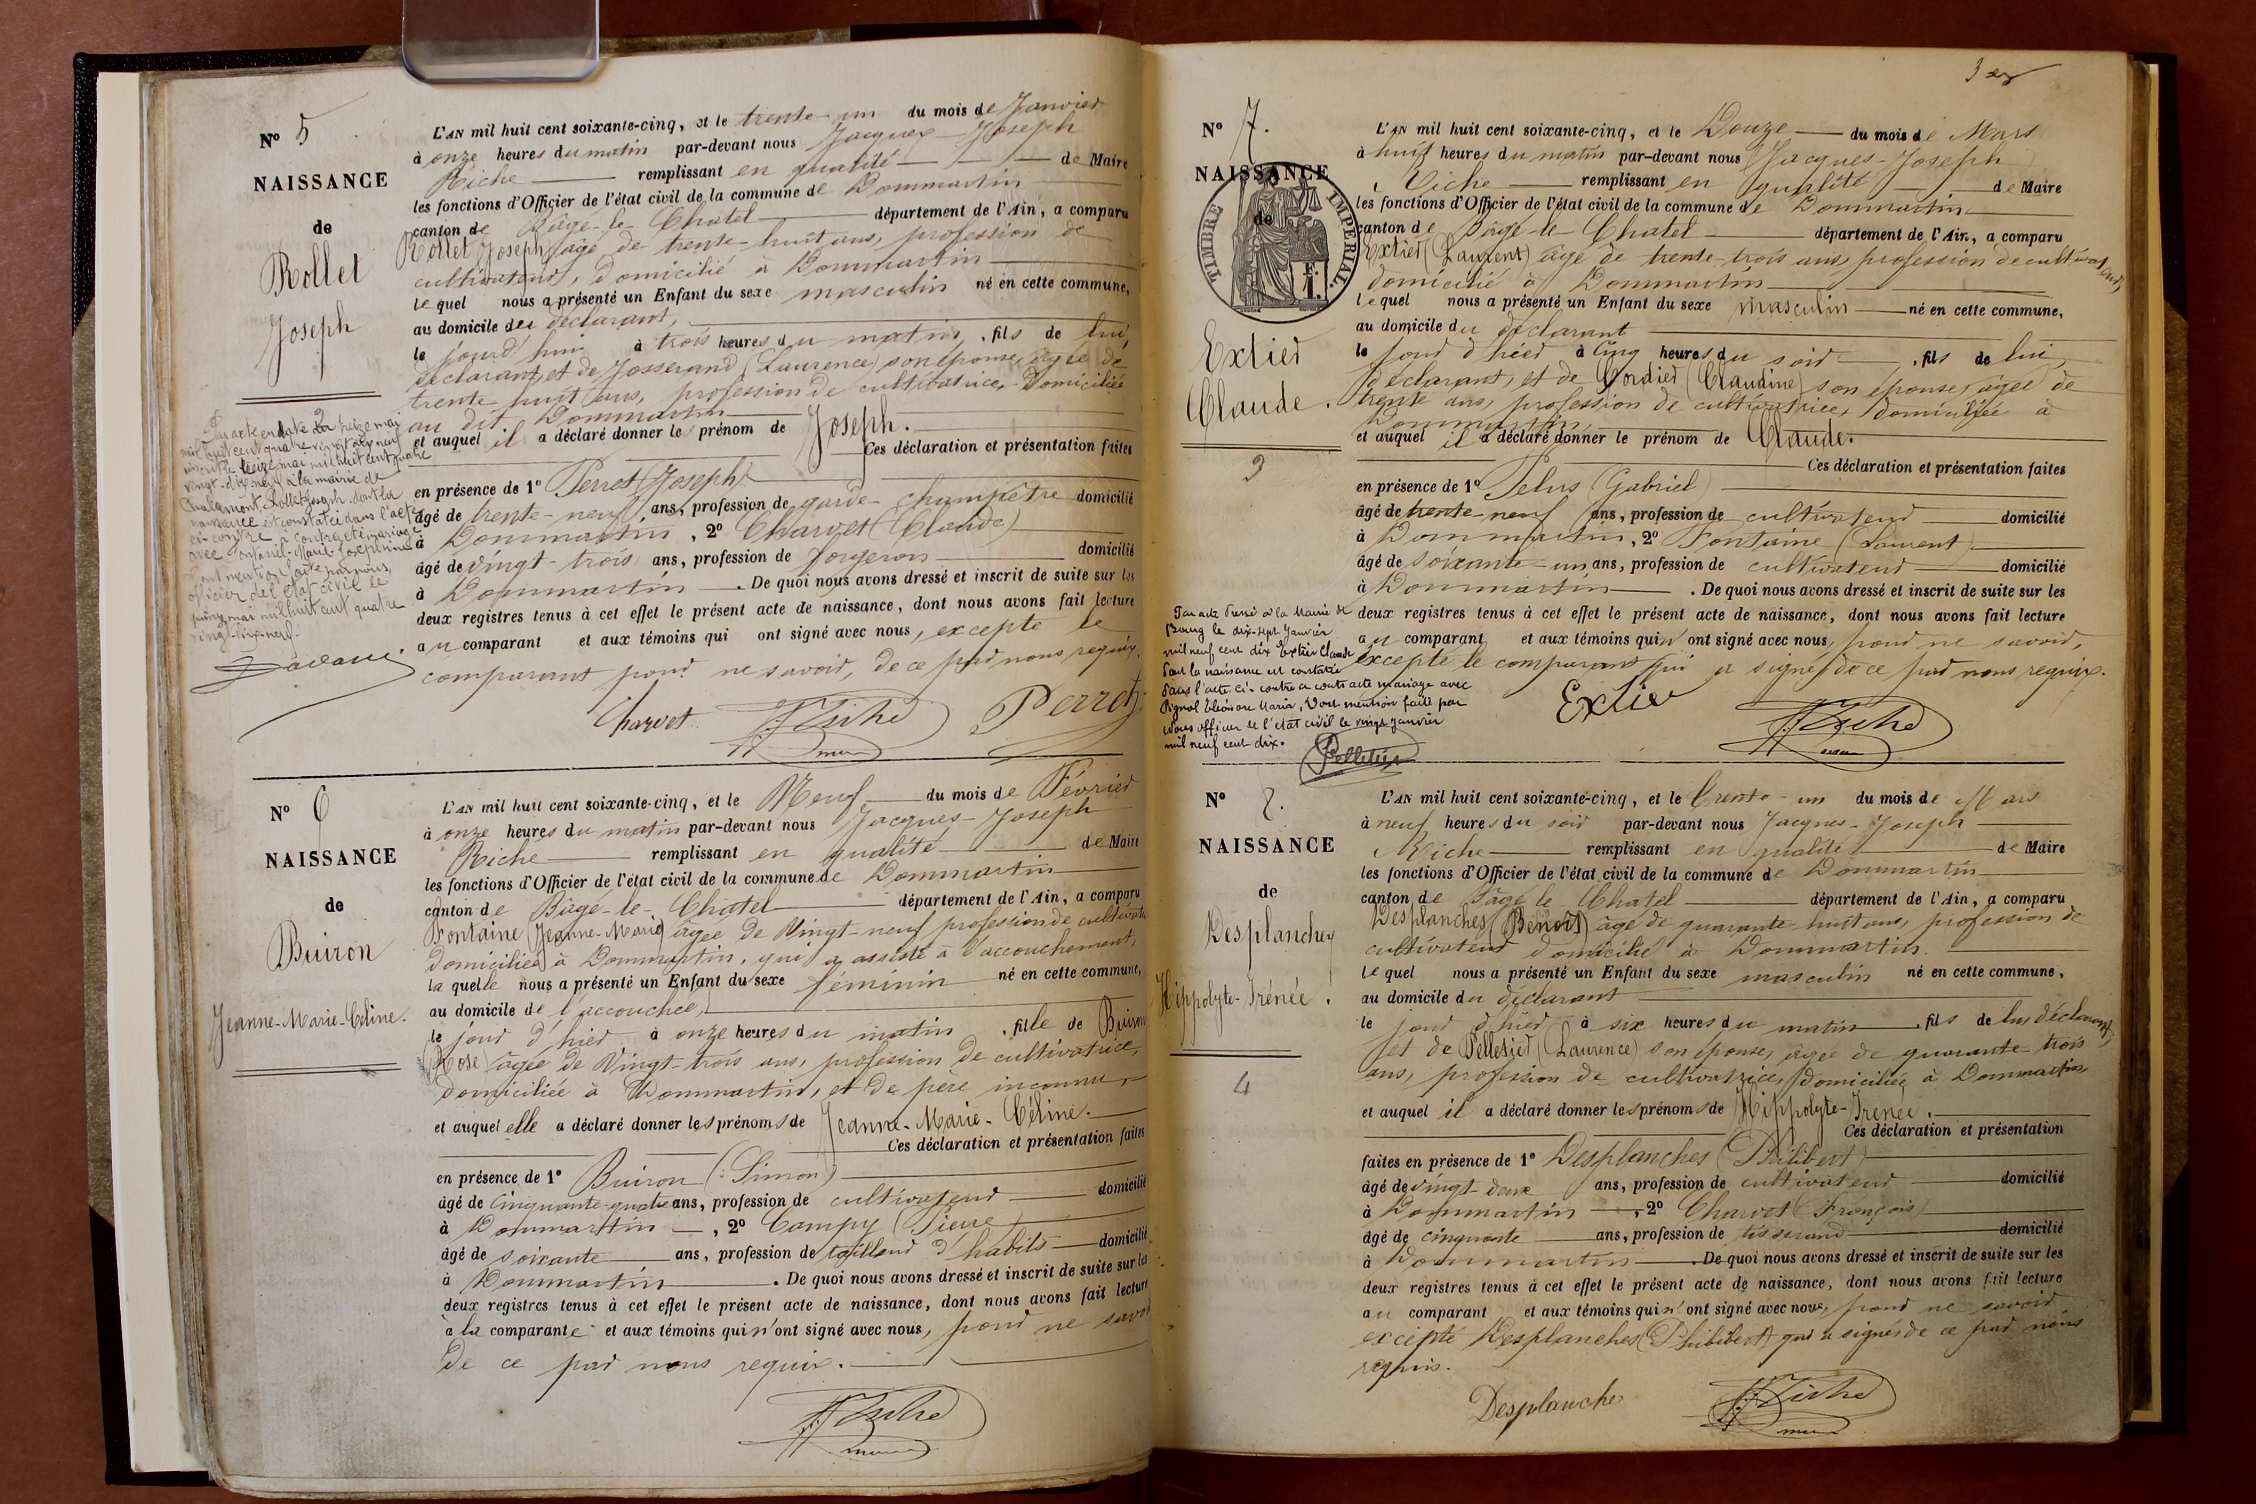 N° 5
NAISSANCE
de
Rollet
Joseph
L'AN mil huit cent soixante-cinq, et le trente-un du mois de Janvier
à onze heures du matin par-devant nous Jacques-Joseph
Riche remplissant en qualité de Maire
les fonctions d'Officier de l'état civil de la commune de Dommartin
canton de Bâgé-le-Chatel département de l'Ain, a comparu
Rollet Joseph âgé de trente-huit ans, profession de
cultivateur, domicilié à Dommartin
lequel nous a présenté un Enfant du sexe masculin né en cette commune,
au domicile du déclarant,
le jourd'hui à trois heures du matin, fils de lui,
déclarant, et de Josserand (Laurence) son épouse, âgée de
trente-huit ans, profession de cultivatrice, domiciliée
au dit Dommartin
et auquel il a déclaré donner le prénom de Joseph.
Ces déclaration et présentation faites
en présence de 1° Perret (Joseph)
âgé de trente-neuf ans, profession de garde-champêtre domicilié
à Dommartin, 2° Charvet (Claude)
âgé de vingt-trois ans, profession de forgeron domicilié
à Dommartin. De quoi nous avons dressé et inscrit de suite sur les
deux registres tenus à cet effet le présent acte de naissance, dont nous avons fait lecture
au comparant et aux témoins qui ont signé avec nous, excepté le
comparant pour ne savoir, de ce par nous requis.
Charvet JJ Riche Perret
maire
Par acte en date du treize mai
mil huit cent quatre vingt dix neuf
à la mairie de
Chalamont, Rollet Joseph dont la
naissance est constatée dans l'acte
ci-contre, a contracté mariage
avec Marie Joséphine
Dont mention faite par nous,
officier de l'état civil le
quinze mai mil huit cent quatre
vingt-dix-neuf.
N° 6
NAISSANCE
de
Buiron
Jeanne-Marie-Céline.
L'AN mil huit cent soixante-cinq, et le Neuf du mois de Février
à onze heures du matin par-devant nous Jacques-Joseph
Riche remplissant en qualité de Maire
les fonctions d'Officier de l'état civil de la commune de Dommartin
canton de Bâgé-le-Chatel département de l'Ain, a comparu
Fontaine (Jeanne-Marie) âgée de Vingt-neuf profession de cultivatr
domiciliée à Dommartin, qui a assisté à l'accouchement,
laquelle nous a présenté un Enfant du sexe féminin né en cette commune,
au domicile de l'accouchée,
le jour d'hier à onze heures du matin, fille de Buiron
(Rose) âgée de Vingt-trois ans, profession de cultivatrice,
domiciliée à Dommartin, et de père inconnu,
et auquel elle a déclaré donner les prénoms de Jeanne-Marie-Céline.
Ces déclaration et présentation faites
en présence de 1° Buiron (Simon)
âgé de cinquante-quatre ans, profession de cultivateur domicilié
à Dommartin, 2° Campy (Pierre)
âgé de soixante ans, profession de tailleur d'habits domicilié
à Dommartin. De quoi nous avons dressé et inscrit de suite sur les
deux registres tenus à cet effet le présent acte de naissance, dont nous avons fait lecture
à la comparante et aux témoins qui n'ont signé avec nous, pour ne savoir
de ce par nous requis.
JJ Riche
maire
N° 7.
NAISSANCE
de
TIMBRE IMPERIAL.
F.
1.
Extier
Claude.
3
L'AN mil huit cent soixante-cinq, et le Douze du mois de Mars
à huit heures du matin par-devant nous Jacques-Joseph
Riche remplissant en qualité de Maire
les fonctions d'Officier de l'état civil de la commune de Dommartin
canton de Bâgé-le-Chatel département de l'Ain, a comparu
Extier (Laurent) âgé de trente-trois ans, profession de cultivateur,
domicilié à Dommartin
lequel nous a présenté un Enfant du sexe masculin né en cette commune,
au domicile du déclarant
le jour d'hier à cinq heures du soir, fils de lui,
déclarant, et de Cordier (Claudine) son épouse, âgée de
trente ans, profession de cultivatrice, domiciliée à
Dommartin,
et auquel il a déclaré donner le prénom de Claude.
Ces déclaration et présentation faites
en présence de 1° Pelus (Gabriel)
âgé de trente-neuf ans, profession de cultivateur domicilié
à Dommartin, 2° Fontaine (Laurent)
âgé de soixante-un ans, profession de cultivateur domicilié
à Dommartin. De quoi nous avons dressé et inscrit de suite sur les
deux registres tenus à cet effet le présent acte de naissance, dont nous avons fait lecture
au comparant et aux témoins qui n'ont signé avec nous, pour ne savoir,
excepté le comparant qui a signé, de ce par nous requis.
Extier JJ Riche
maire
Par acte dressé à la Mairie de
Bourg le dix-sept Janvier
mil neuf cent dix Extier Claude
dont la naissance est constatée
dans l'acte ci-contre a contracté mariage avec
Pignol Eléonore Maria, Dont mention faite par
Nous officier de l'état civil le vingt janvier
mil neuf cent dix.
Pelletier
N° 8.
NAISSANCE
de
Desplanches
Hippolyte-Irénée.
4
L'AN mil huit cent soixante-cinq, et le trente-un du mois de Mars
à neuf heures du soir par-devant nous Jacques-Joseph
Riche remplissant en qualité de Maire
les fonctions d'Officier de l'état civil de la commune de Dommartin
canton de Bâgé-le-Chatel département de l'Ain, a comparu
Desplanches (Benoit) âgé de quarante-huit ans, profession de
cultivateur domicilié à Dommartin.
lequel nous a présenté un Enfant du sexe masculin né en cette commune,
au domicile du déclarant
le jour d'hier à six heures du matin, fils de lui, déclarant,
et de Pelletier (Laurence) son épouse, âgée de quarante-trois
ans, profession de cultivatrice, domiciliée à Dommartin,
et auquel il a déclaré donner les prénoms de Hippolyte-Irénée.
Ces déclaration et présentation
faites en présence de 1° Desplanches (Philibert)
âgé de vingt-deux ans, profession de cultivateur domicilié
à Dommartin, 2° Charvet (François)
âgé de cinquante ans, profession de tisserand domicilié
à Dommartin. De quoi nous avons dressé et inscrit de suite sur les
deux registres tenus à cet effet le présent acte de naissance, dont nous avons fait lecture
au comparant et aux témoins qui n'ont signé avec nous, pour ne savoir
excepté Desplanches (Philibert) qui a signé, de ce par nous
requis.
Desplanche JJ Riche
maire